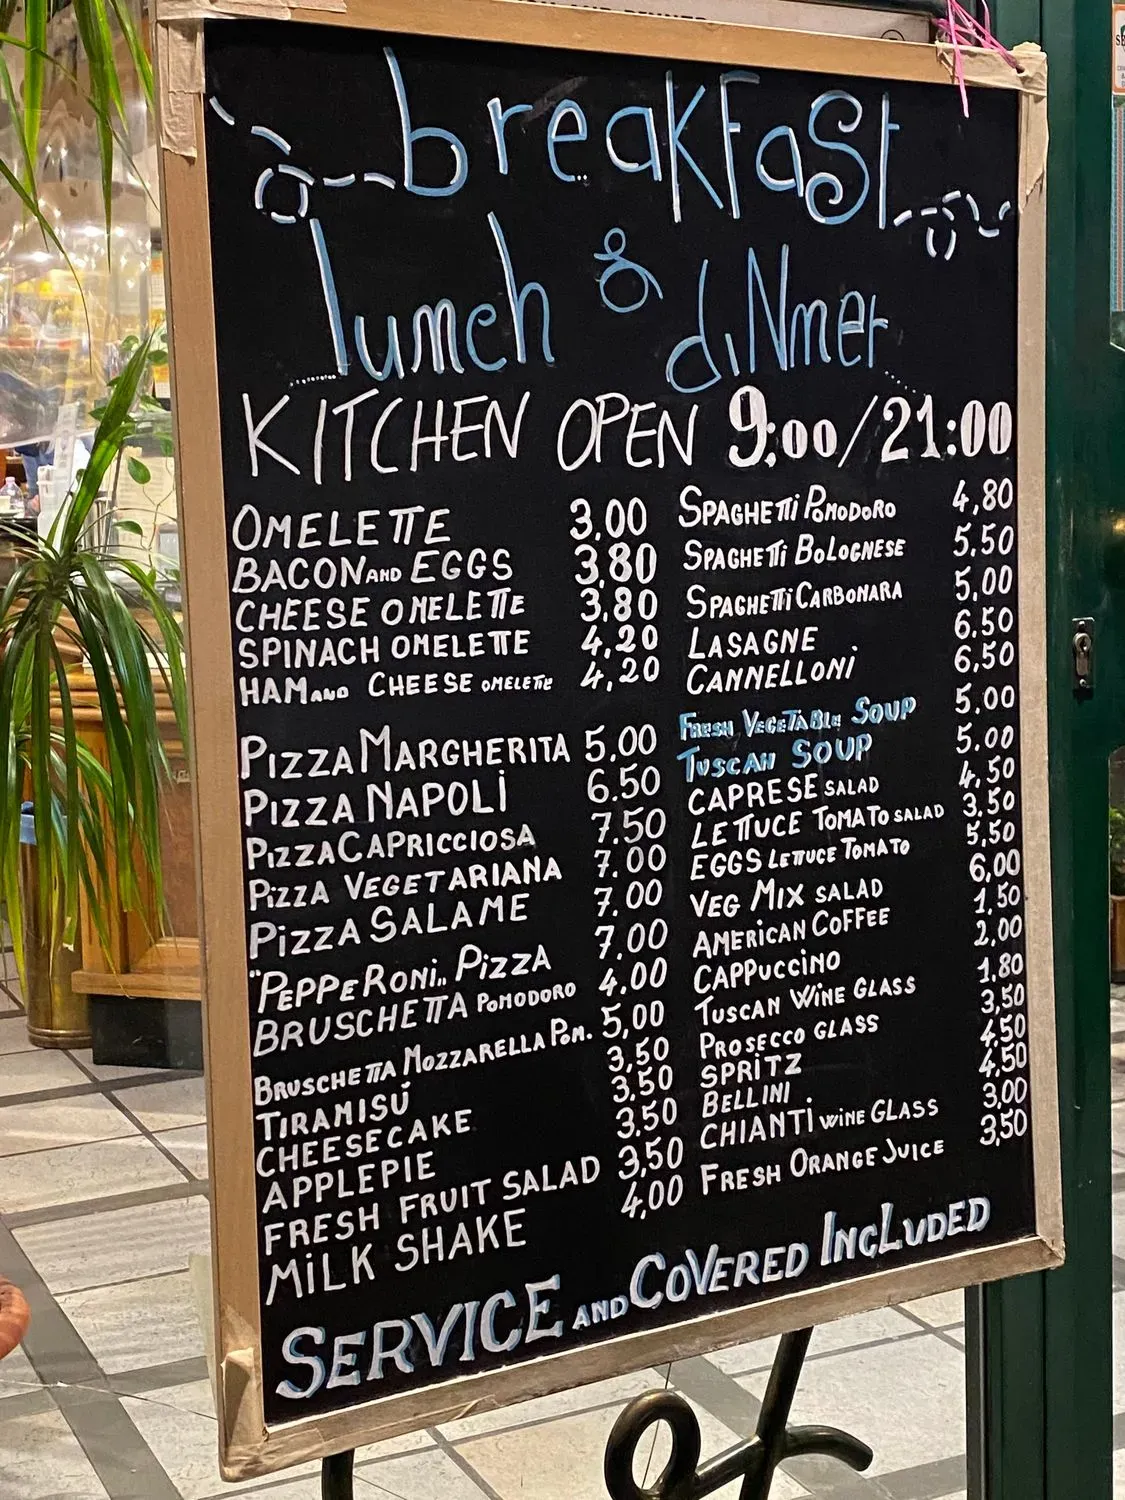 breakFast
lunch & diNner
KITCHEN OPEN 9:00/21:00
OMELETTE 3,00
BACON AND EGGS 3,80
CHEESE OMELETTE 3,80
SPINACH OMELETTE 4,20
HAM AND CHEESE OMELETTE 4,20
PIZZA MARGHERITA 5,00
PIZZA NAPOLI 6.50
PIZZA CAPRICCIOSA 7.50
PIZZA VEGETARIANA 7.00
PIZZA SALAME 7.00
"PEPPERONI" PIZZA 7,00
BRUSCHETTA POMODORO 4,00
BRUSCHETTA MOZZARELLA POM. 5,00
TIRAMISÚ 3,50
CHEESECAKE 3.50
APPLEPIE 3.50
FRESH FRUIT SALAD 3,50
MILK SHAKE 4,00
SPAGHETTI POMODORO 4,80
SPAGHETTI BOLOGNESE 5.50
SPAGHETTI CARBONARA 5,00
LASAGNE 6.50
CANNELLONI 6,50
FRESH VEGETABLE SOUP 5.00
TUSCAN SOUP 5.00
CAPRESE SALAD 4,50
LETTUCE TOMATO SALAD 3,50
EGGS LETTUCE TOMATO 5,50
VEG MIX SALAD 6,00
AMERICAN COFFEE 1,50
CAPPUCCINO 2,00
TUSCAN WINE GLASS 1,80
PROSECCO GLASS 3,50
SPRITZ 4,50
BELLINI 4,50
CHIANTI WINE GLASS 3,00
FRESH ORANGE JUICE 3,50
SERVICE AND COVERED INCLUDED